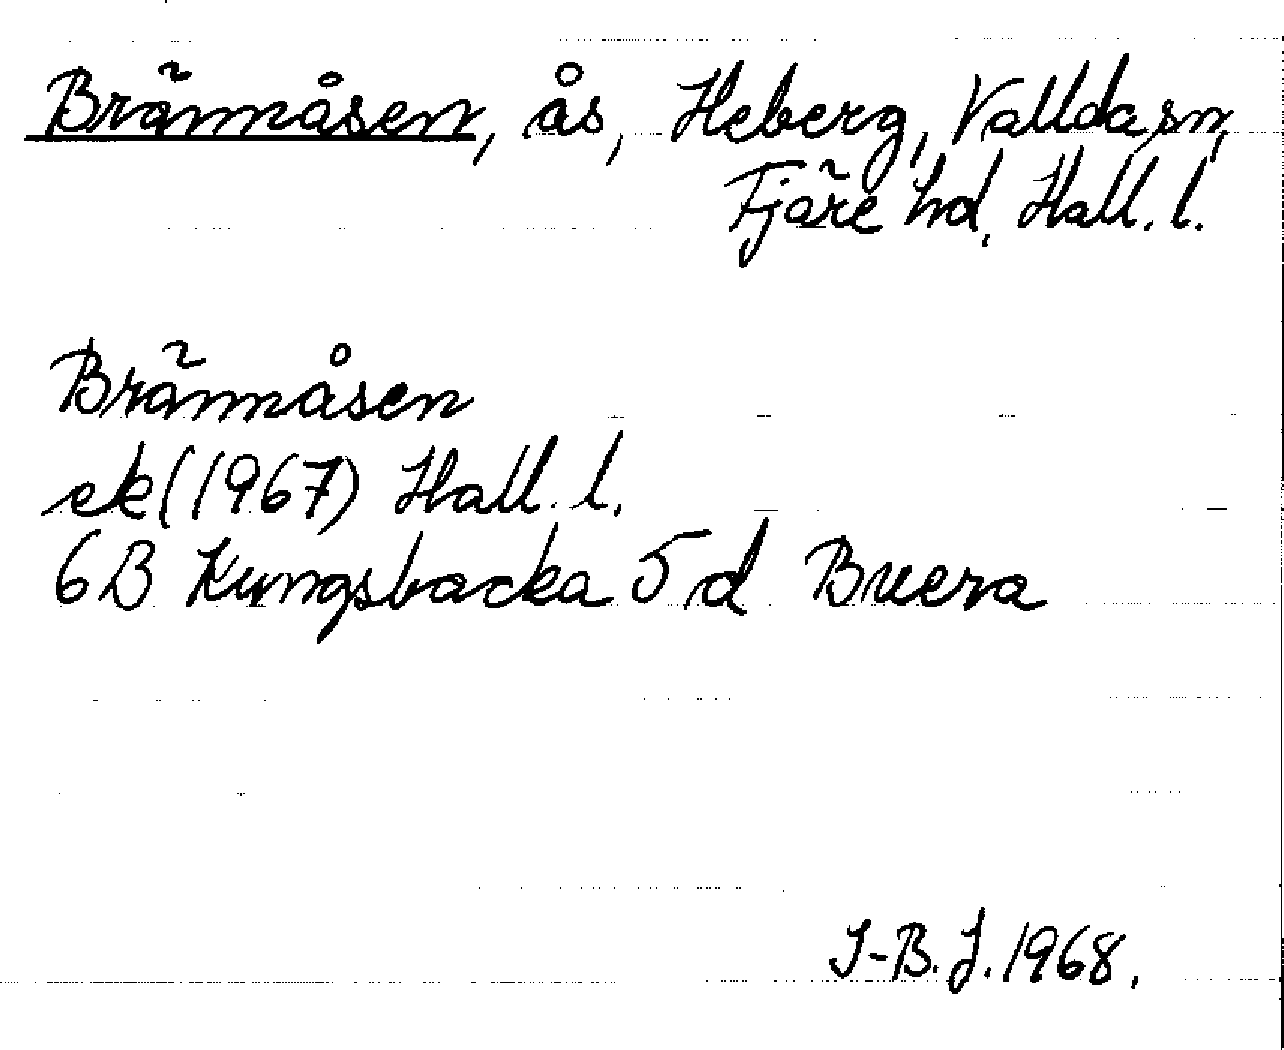 Brännåsen, ås, Heberg, Vallda sn,
Fjäre hd, Hall. l.
Brännåsen
ek (1967) Hall. l.
6B Kungsbacka 5 d Buera
I-B. J. 1968.